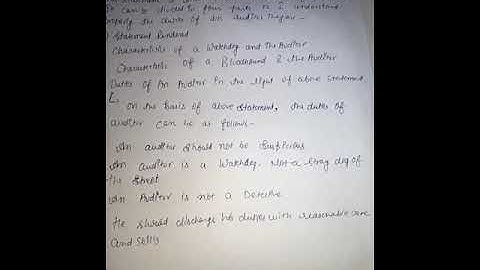 It can be divided to four parts to understand
the duties of an auditor
Statement Rendered
Characteristic of a Watchdog and The Auditor
Characteristic of a Bloodhound & the Auditor
Duties of An Auditor In the light of above statement
on the basis of above statement, the duties of
auditor can be as follows -
An auditor should not be Suspicious
An auditor is a Watchdog. Not a Stray dog of
the Street
An Auditor is not a Detective
He should discharge his duties with reasonable care
and skills